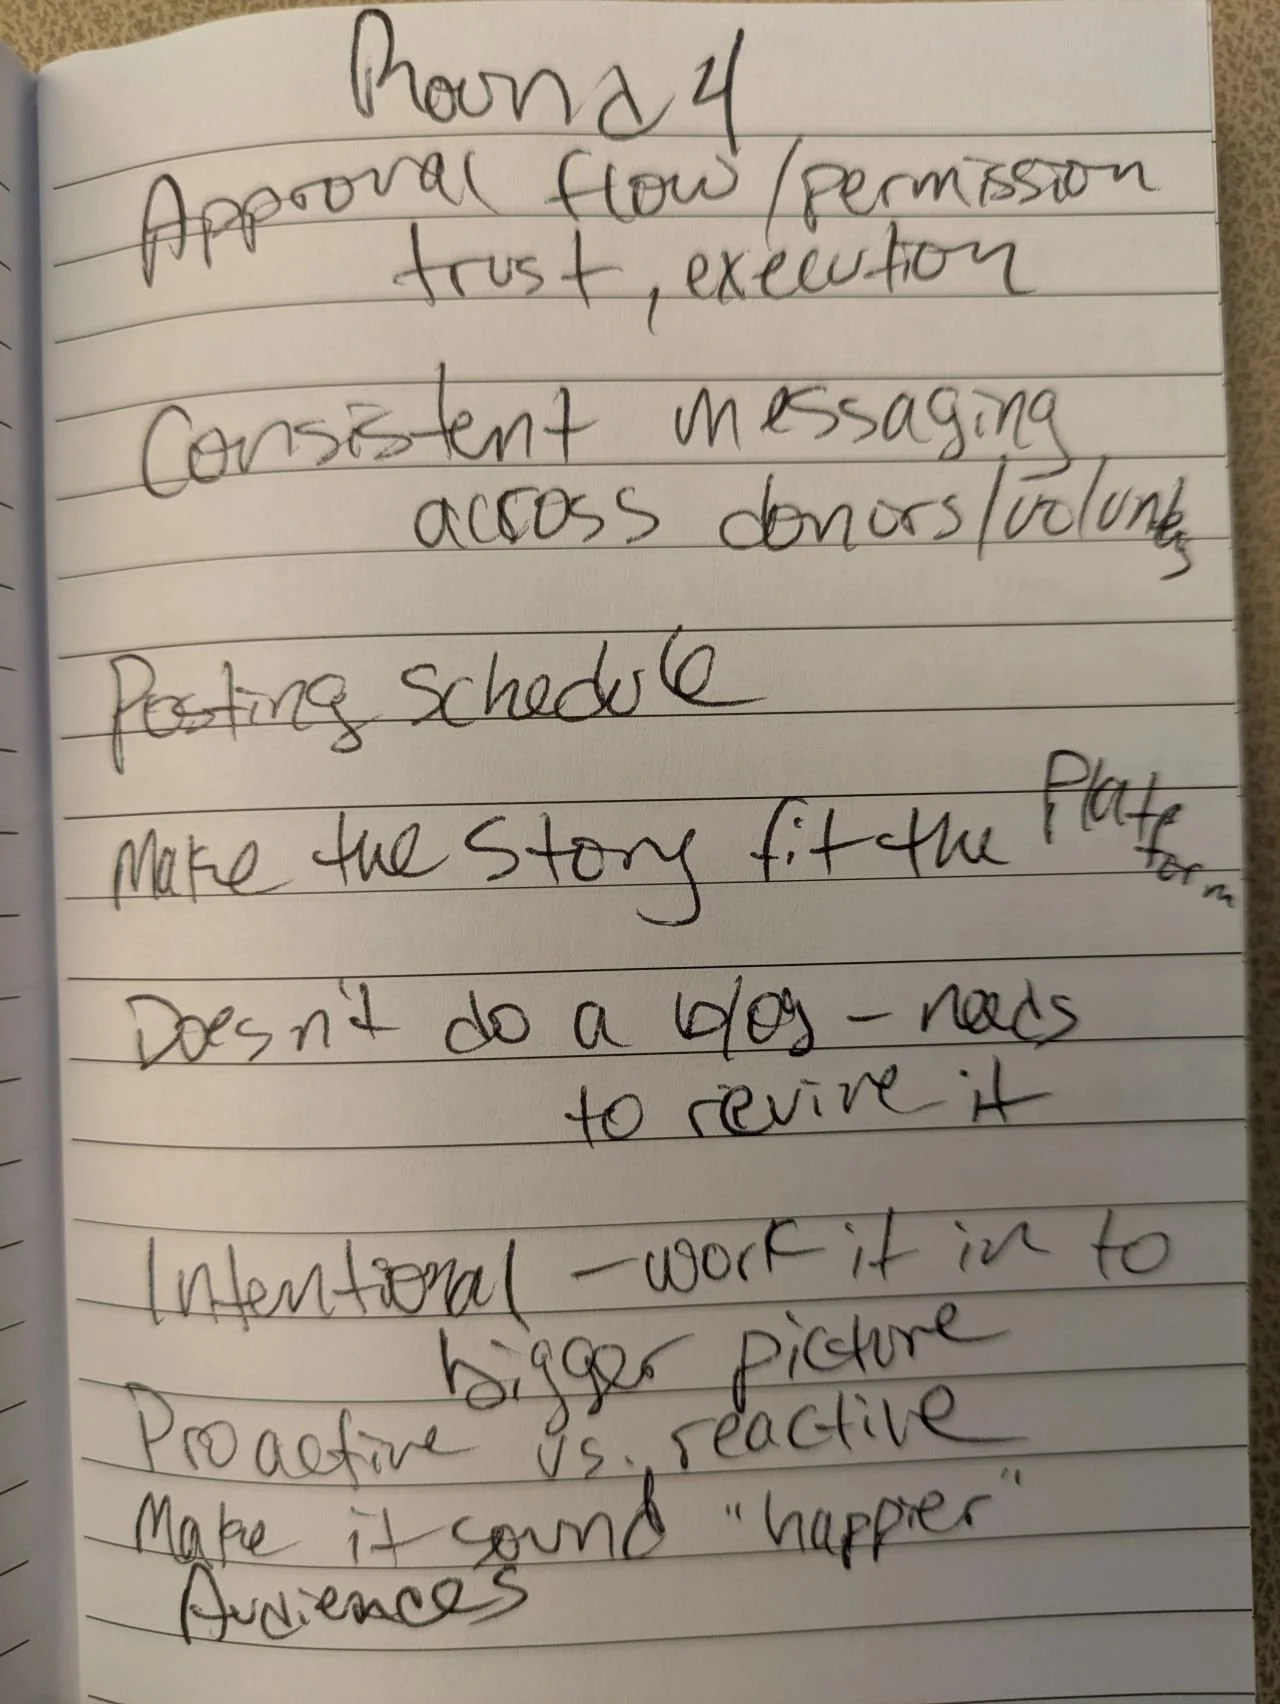 Round 4
Approval flow/permission
trust, execution
Consistent messaging
across donors/volunteers
Posting schedule
Make the story fit the Platform
Doesn't do a blog – needs
to revive it
Intentional – work it in to
bigger picture
Proactive vs. reactive
Make it sound "happier"
Audiences